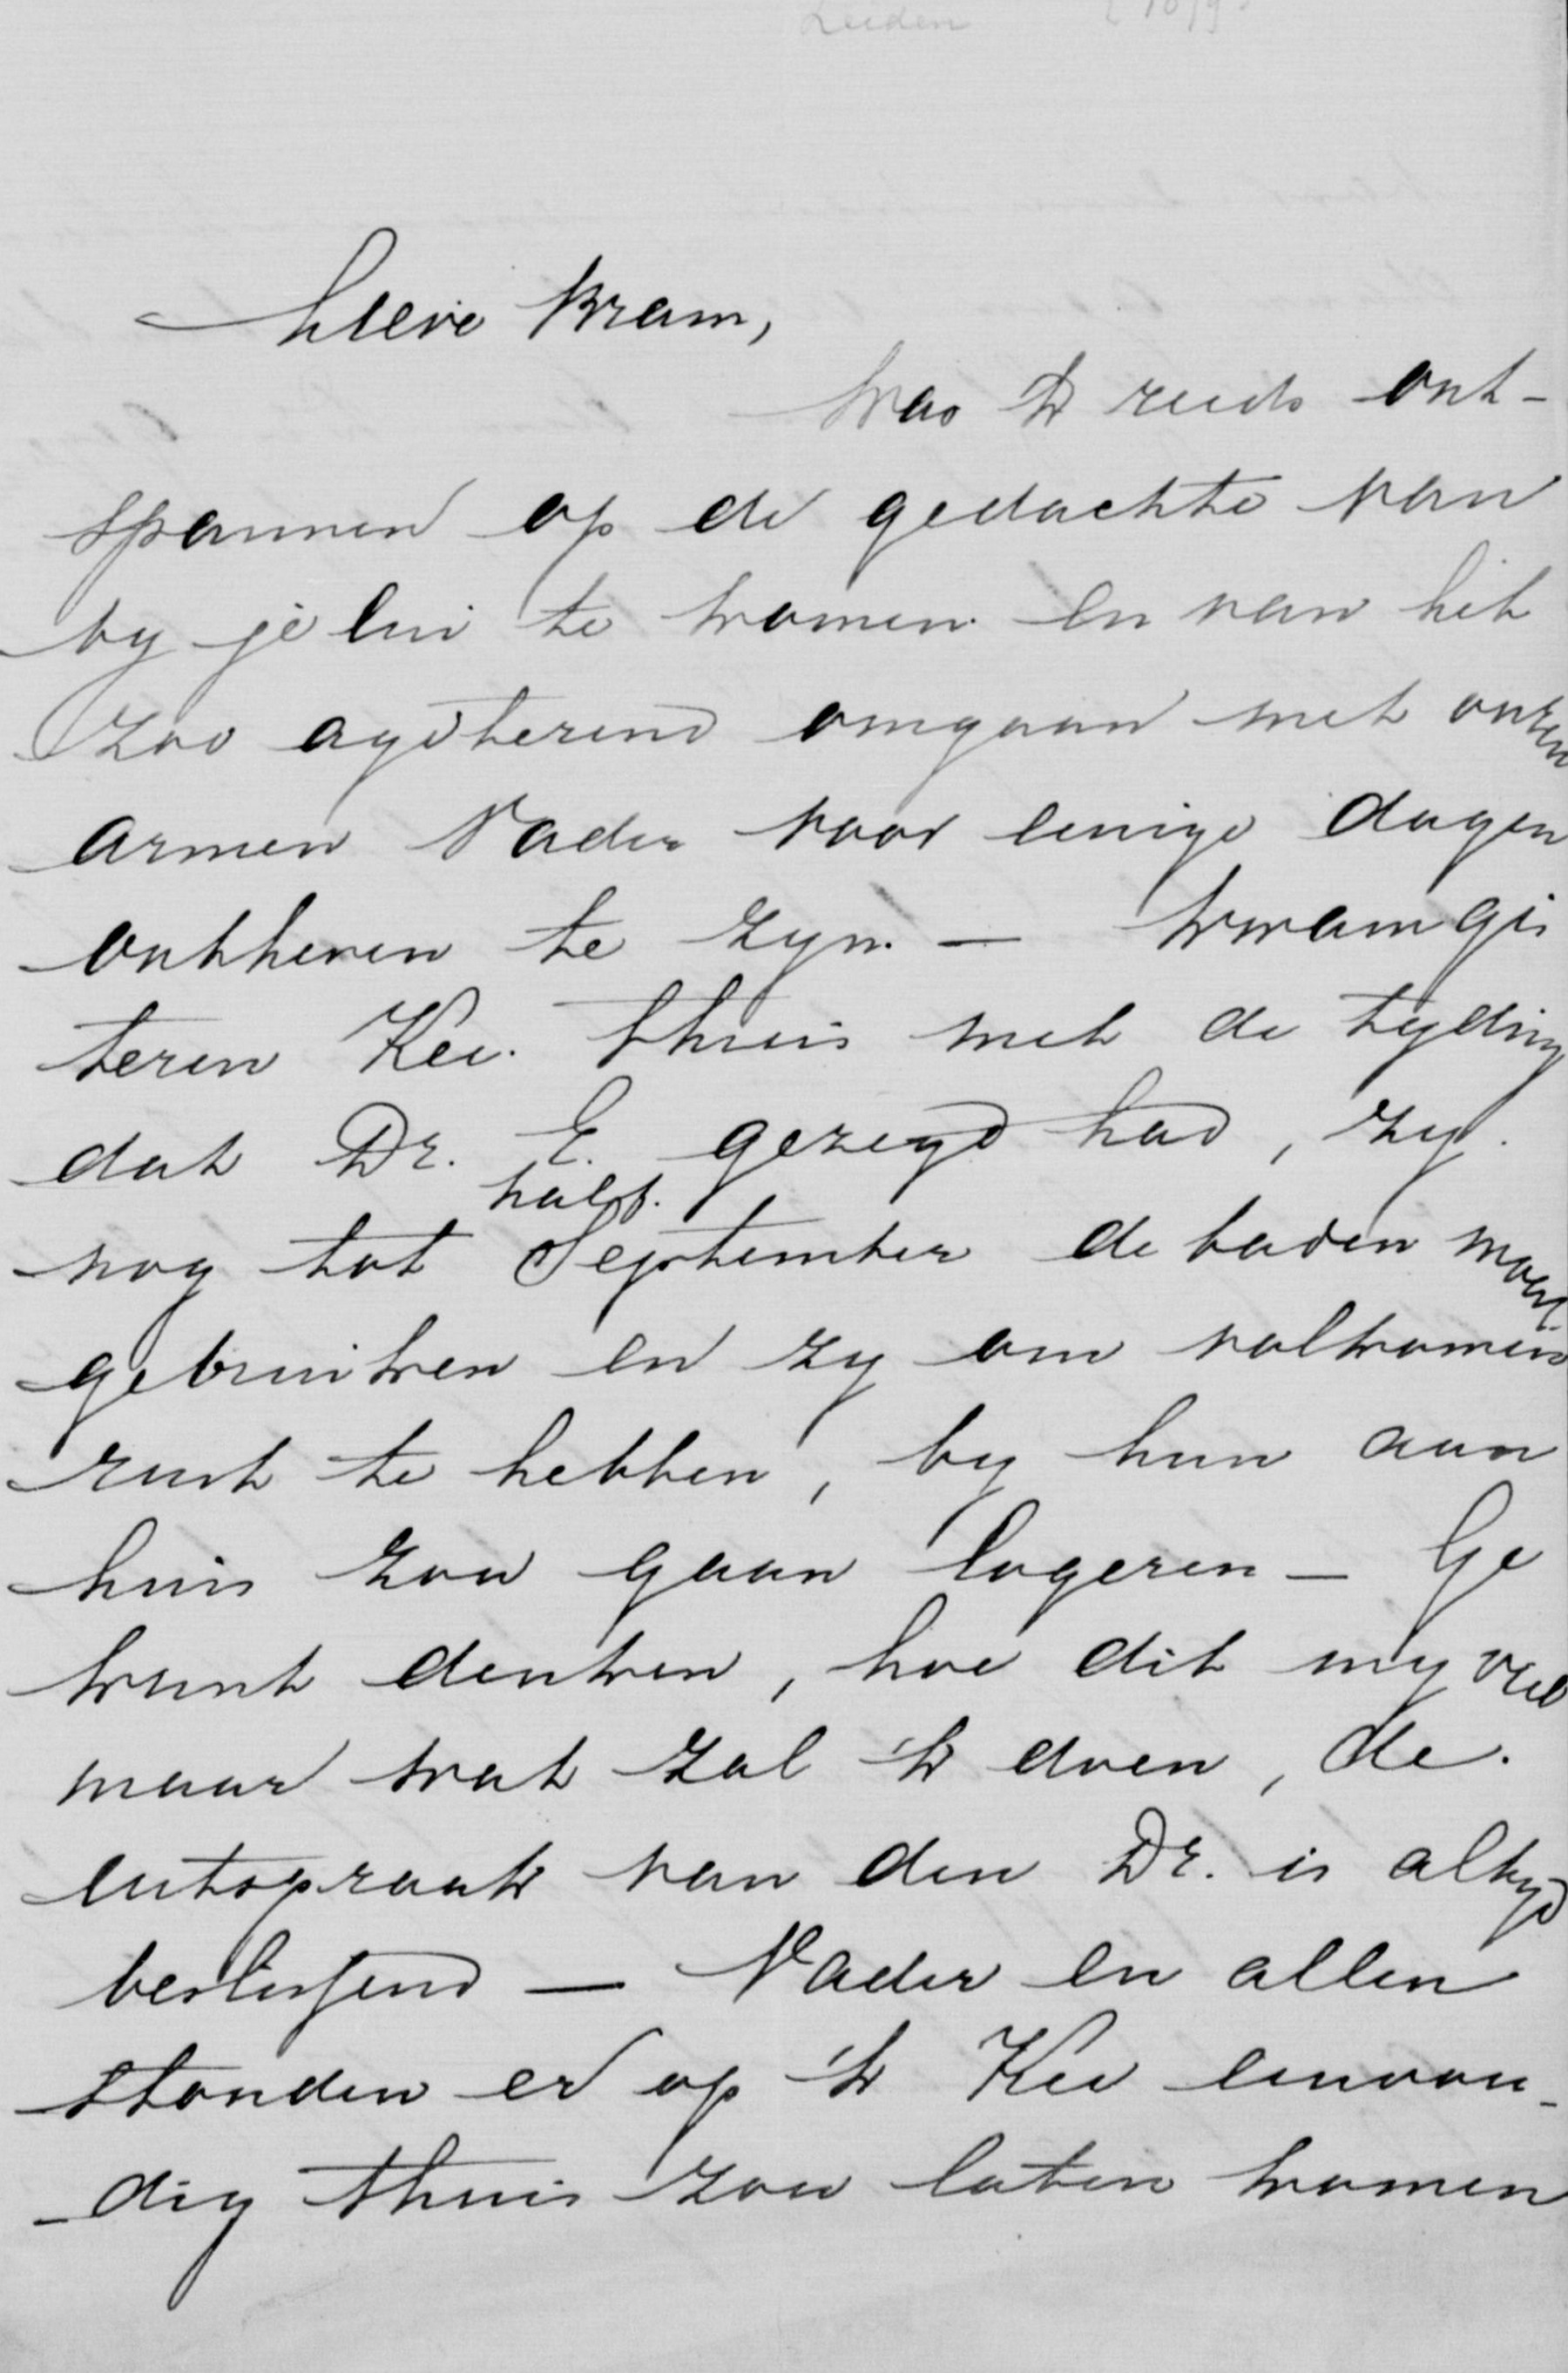 Leiden
Lieve Bram,
Was ik reeds ont-
spannen op de gedachte van
by je lui te komen en van het
zoo agiterend omgaan met onzen
armen Vader voor eenige dagen
ontheven te zyn. — kwam gis
teren Kee. thuis met de tyding
dat Dr. E. gezegd had, zy.
half.
nog tot September de baden moest
gebruiken en zy om volkomen
rust te hebben, by hun aan
huis zou gaan logeren — Ge
kunt denken, hoe dit my viel
maar wat zal ik doen, de.
uitspraak van den Dr. is altyd
beslissend — Vader en allen
stonden er op ik Kee eenvou-
dig thuis zou laten komen